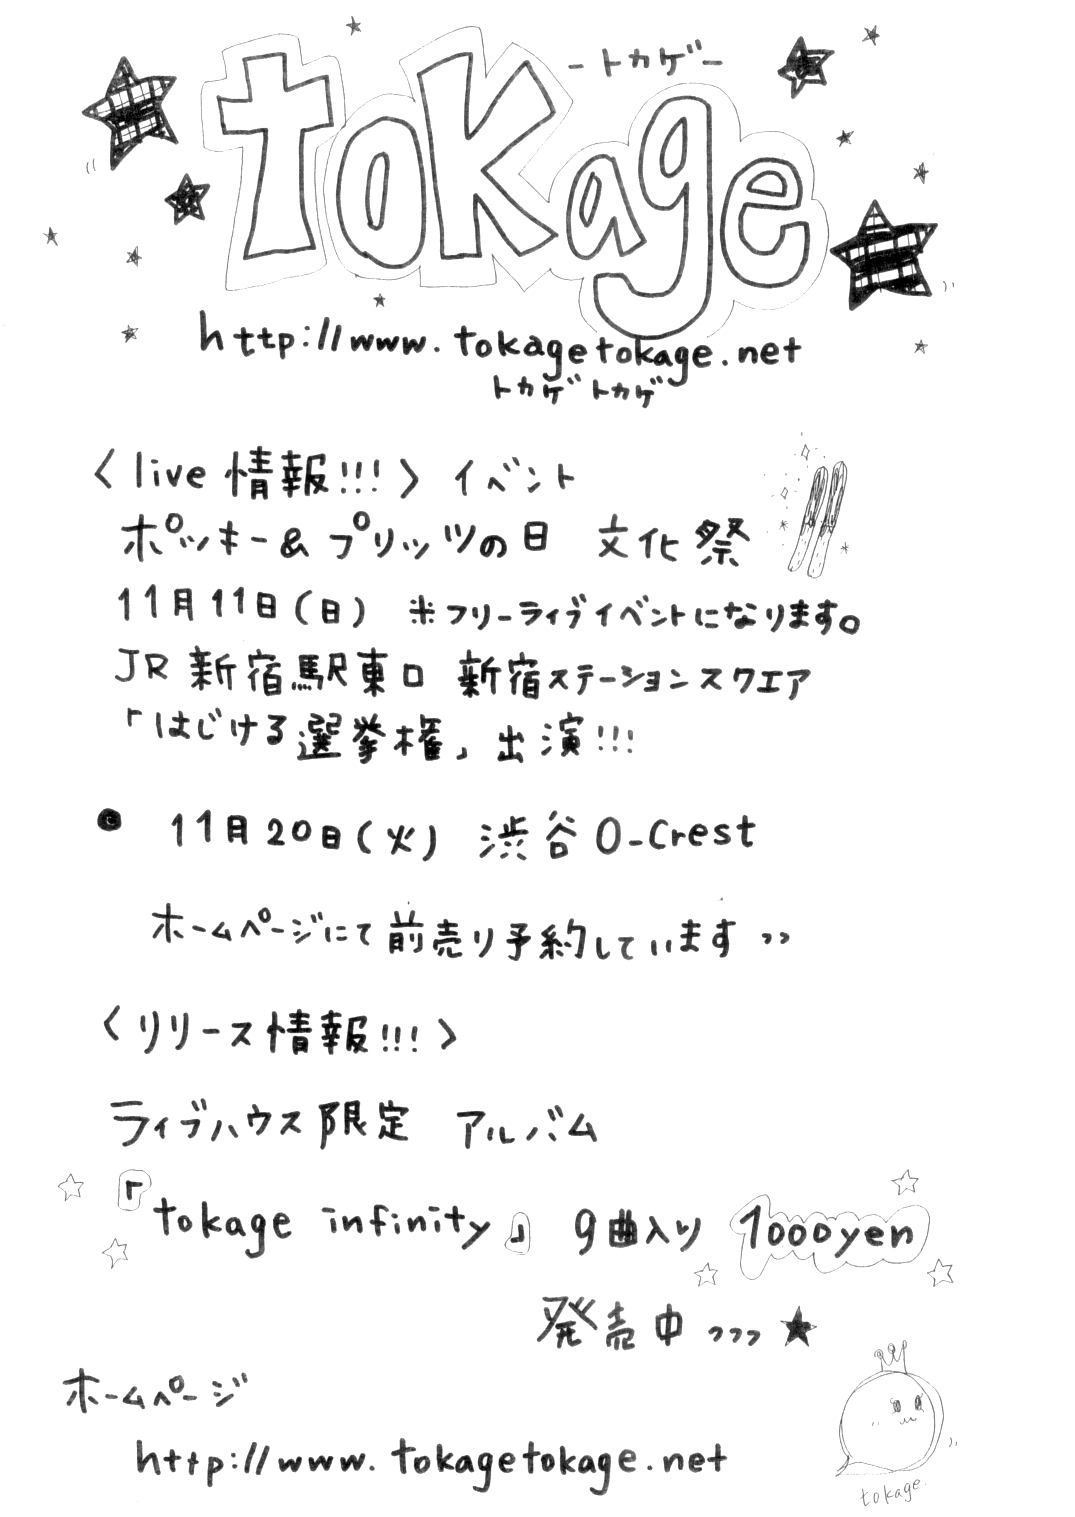 tokage
-トカゲ-
http://www.tokagetokage.net
トカゲトカゲ
〈live 情報!!!〉 イベント
ポッキー&プリッツの日 文化祭
11月11日(日) ※フリーライブイベントになります。
JR 新宿駅東口 新宿ステーションスクエア
「はじける選挙権」出演!!!
● 11月20日(火) 渋谷 O-Crest
ホームページにて前売り予約しています››
〈リリース情報!!!〉
ライブハウス限定 アルバム
「tokage infinity」 9曲入り 1000yen
発売中 ››› ★
ホームページ
http://www.tokagetokage.net
tokage